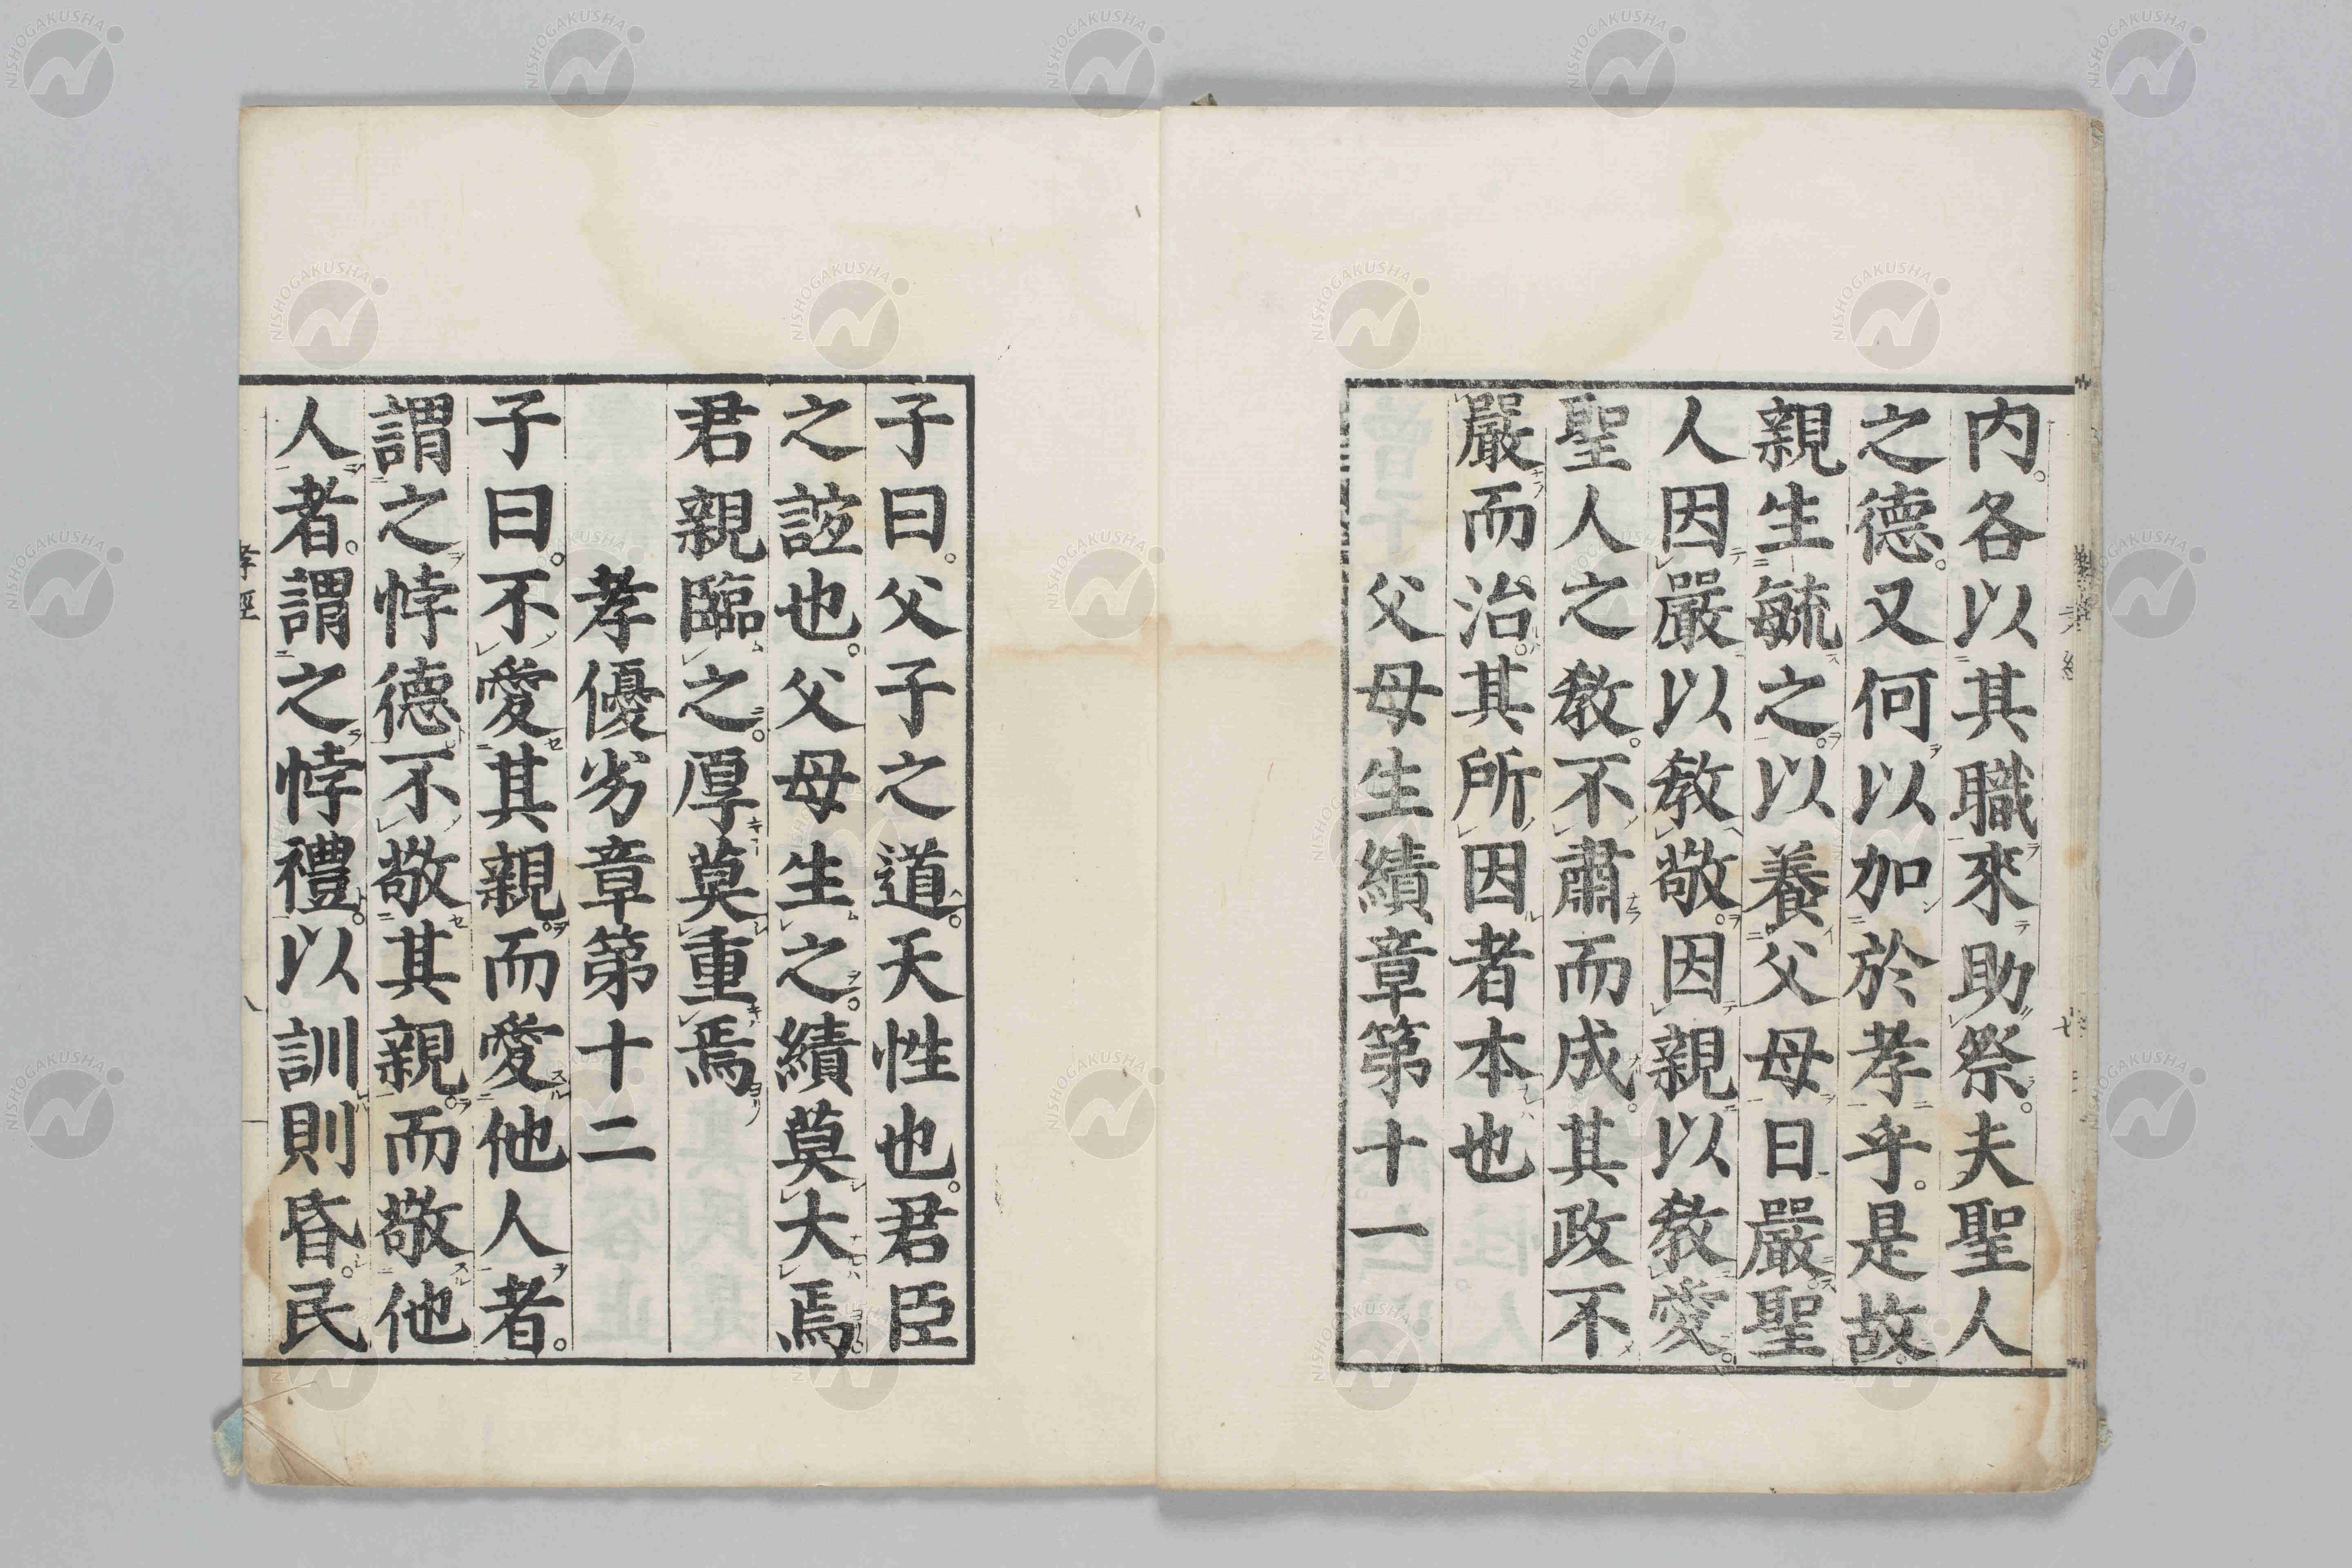 内。各以其職來助祭。夫聖人
之德。又何以加於孝乎。是故
親生毓之。以養父母日嚴。聖
人因嚴以敎敬。因親以敎愛。
聖人之敎。不肅而成。其政不
嚴而治。其所因者本也
父母生績章第十一
子曰。父子之道。天性也。君臣
之誼也。父母生之。績莫大焉。
君親臨之。厚莫重焉
孝優劣章第十二
子曰。不愛其親。而愛他人者。
謂之悖德。不敬其親。而敬他
人者。謂之悖禮。以訓則昏。民
孝經
NISHOGAKUSHA